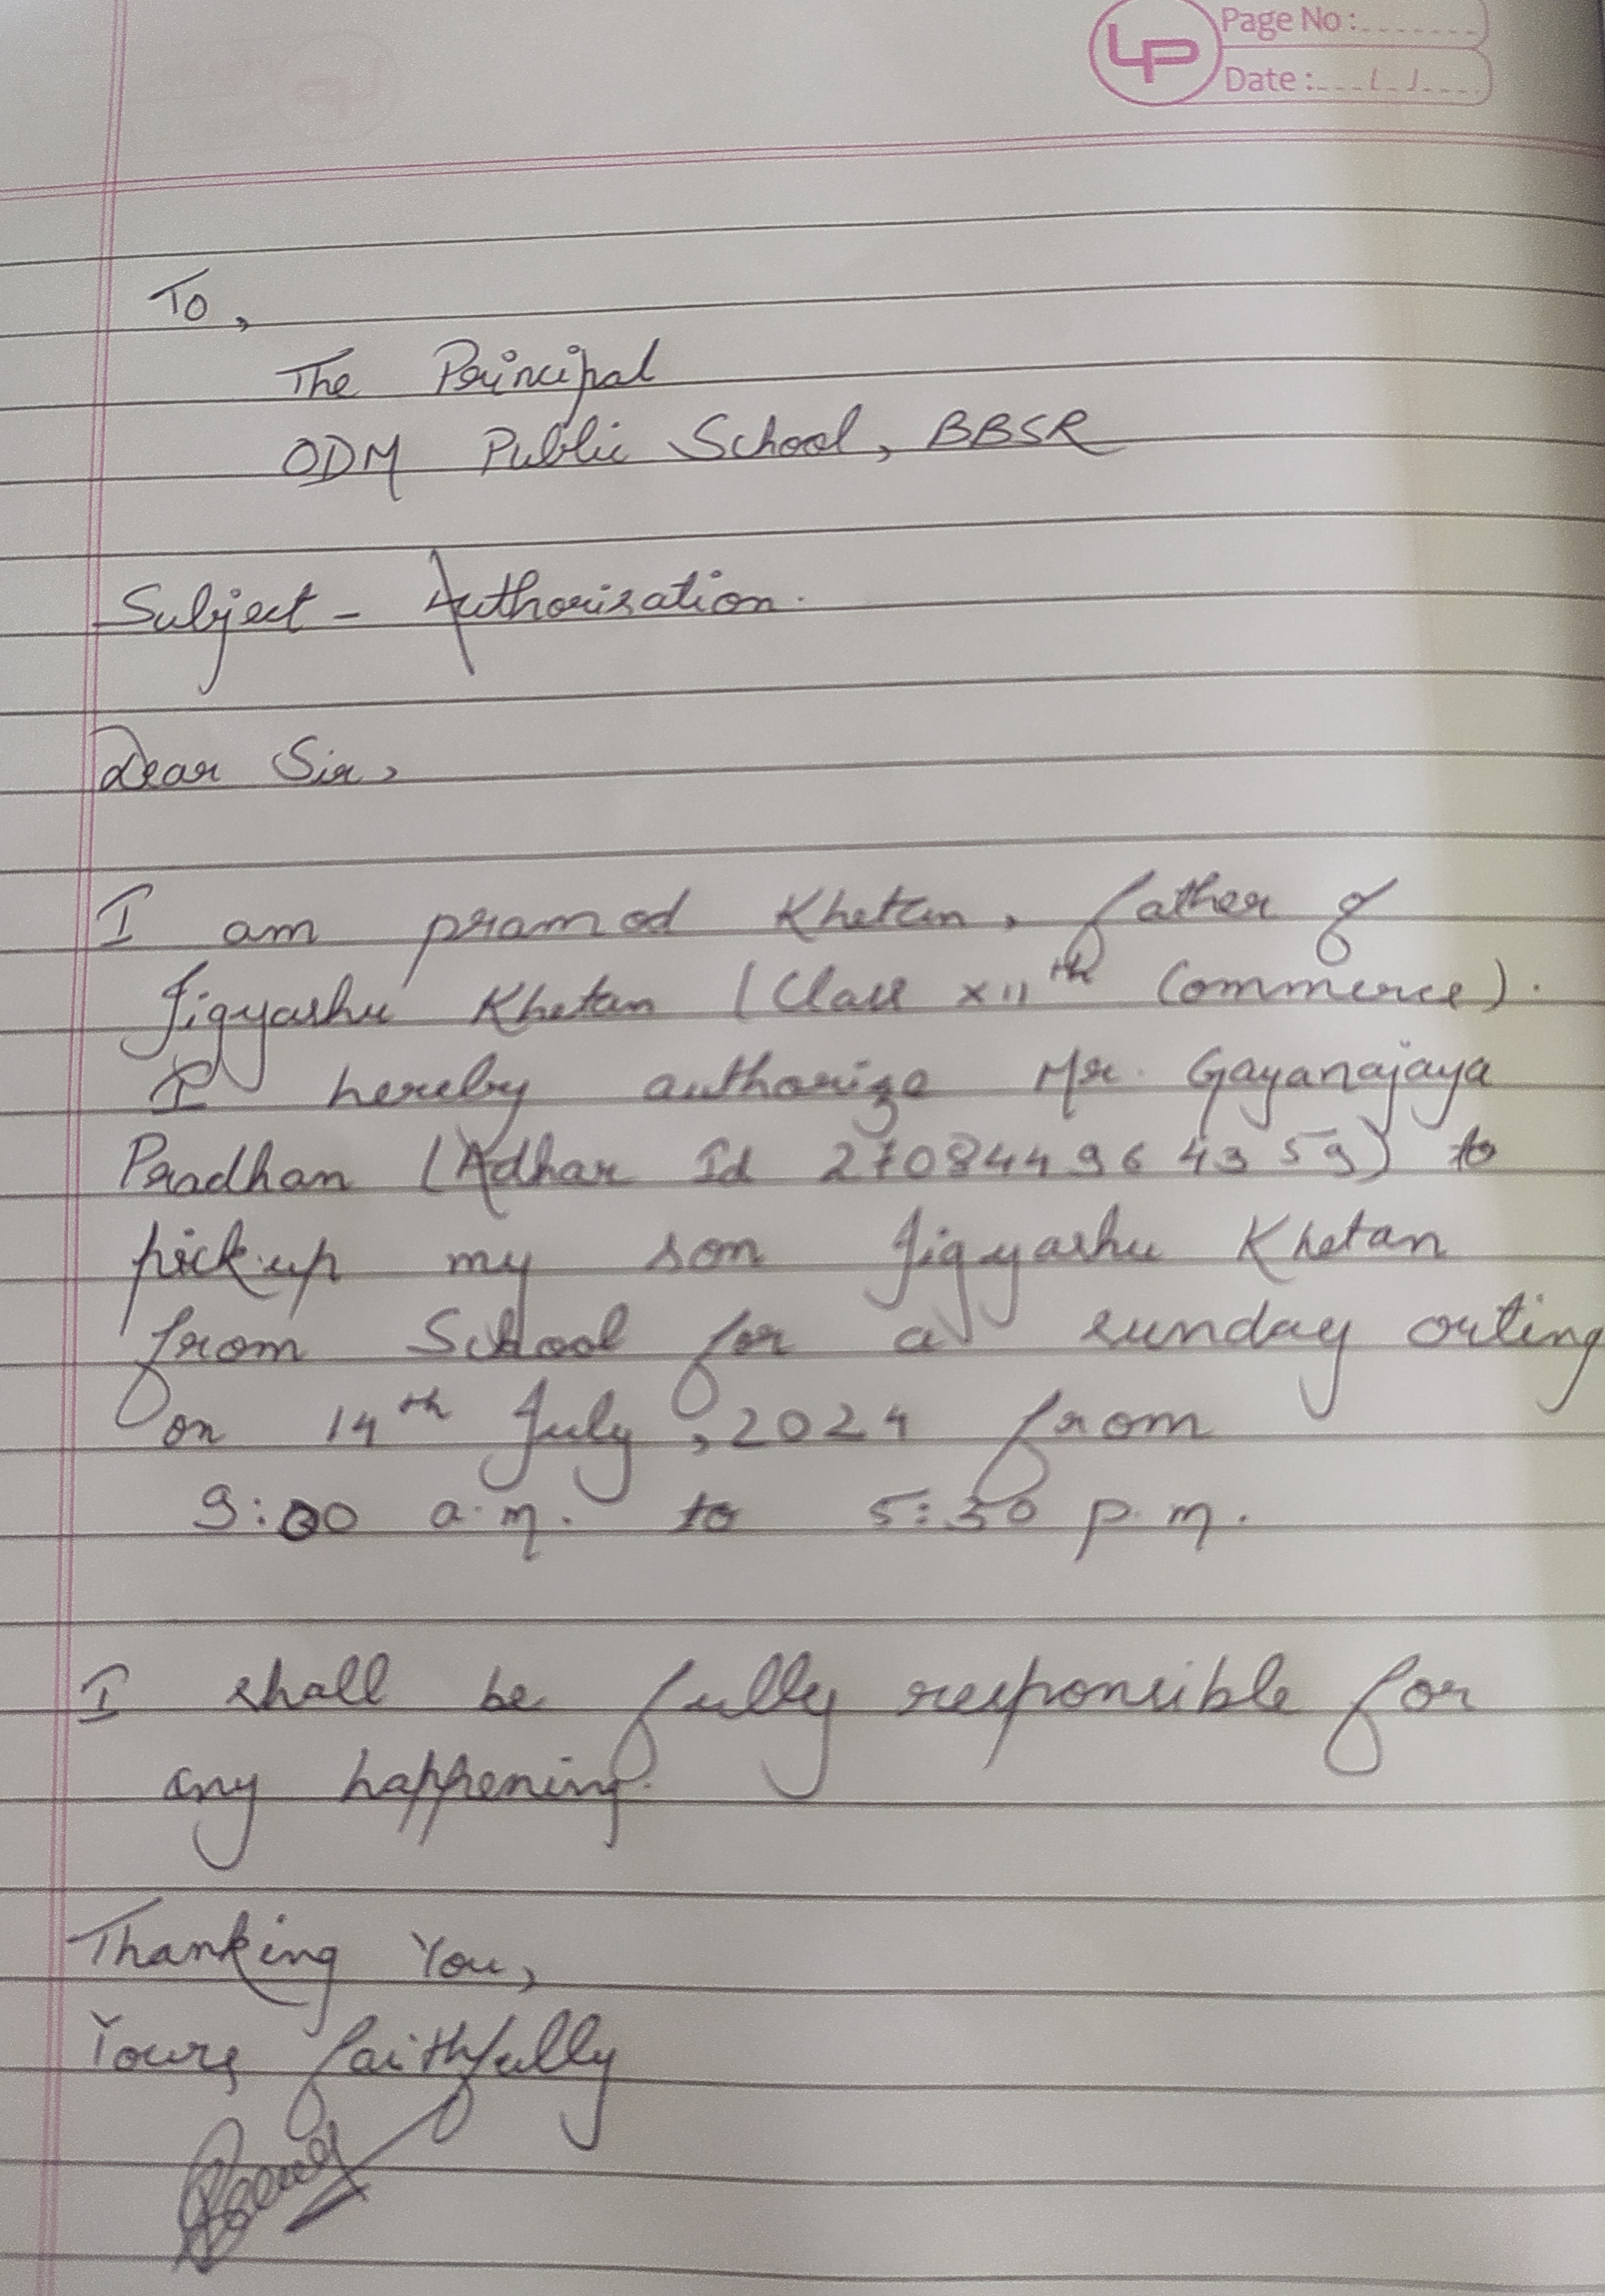 LP
Page No:
Date:
To,
The Principal
ODM Public School, BBSR
Subject - Authorisation.
Dear Sir,
I am pramod Khetan, father of
Jigyashu Khetan (Class XIIth Commerce).
I hereby authorize Mr. Gayanajaya
Pradhan (Adhar Id 270844964359) to
pickup my son Jigyashu Khetan
from School for a sunday outing
on 14th July, 2024 from
9:00 a.m. to 5:30 p.m.
I shall be fully responsible for
any happening.
Thanking You,
Yours faithfully